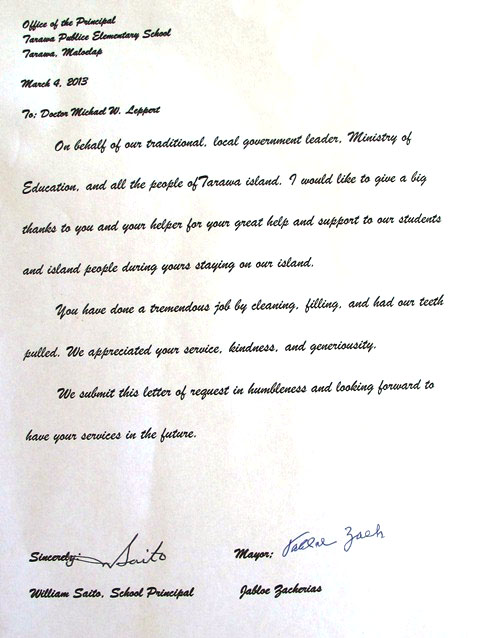 Office of the Principal
Tarawa Publice Elementary School
Tarawa, Maloelap
March 4, 2013
To: Doctor Michael W. Leppert
On behalf of our traditional, local government leader, Ministry of
Education, and all the people of Tarawa island. I would like to give a big
thanks to you and your helper for your great help and support to our students
and island people during yours staying on our island.
You have done a tremendous job by cleaning, filling, and had our teeth
pulled. We appreciated your service, kindness, and generiousity.
We submit this letter of request in humbleness and looking forward to
have your services in the future.
Sincerely: Saito Mayor: Zach
William Saito, School Principal Jabloe Zacherias